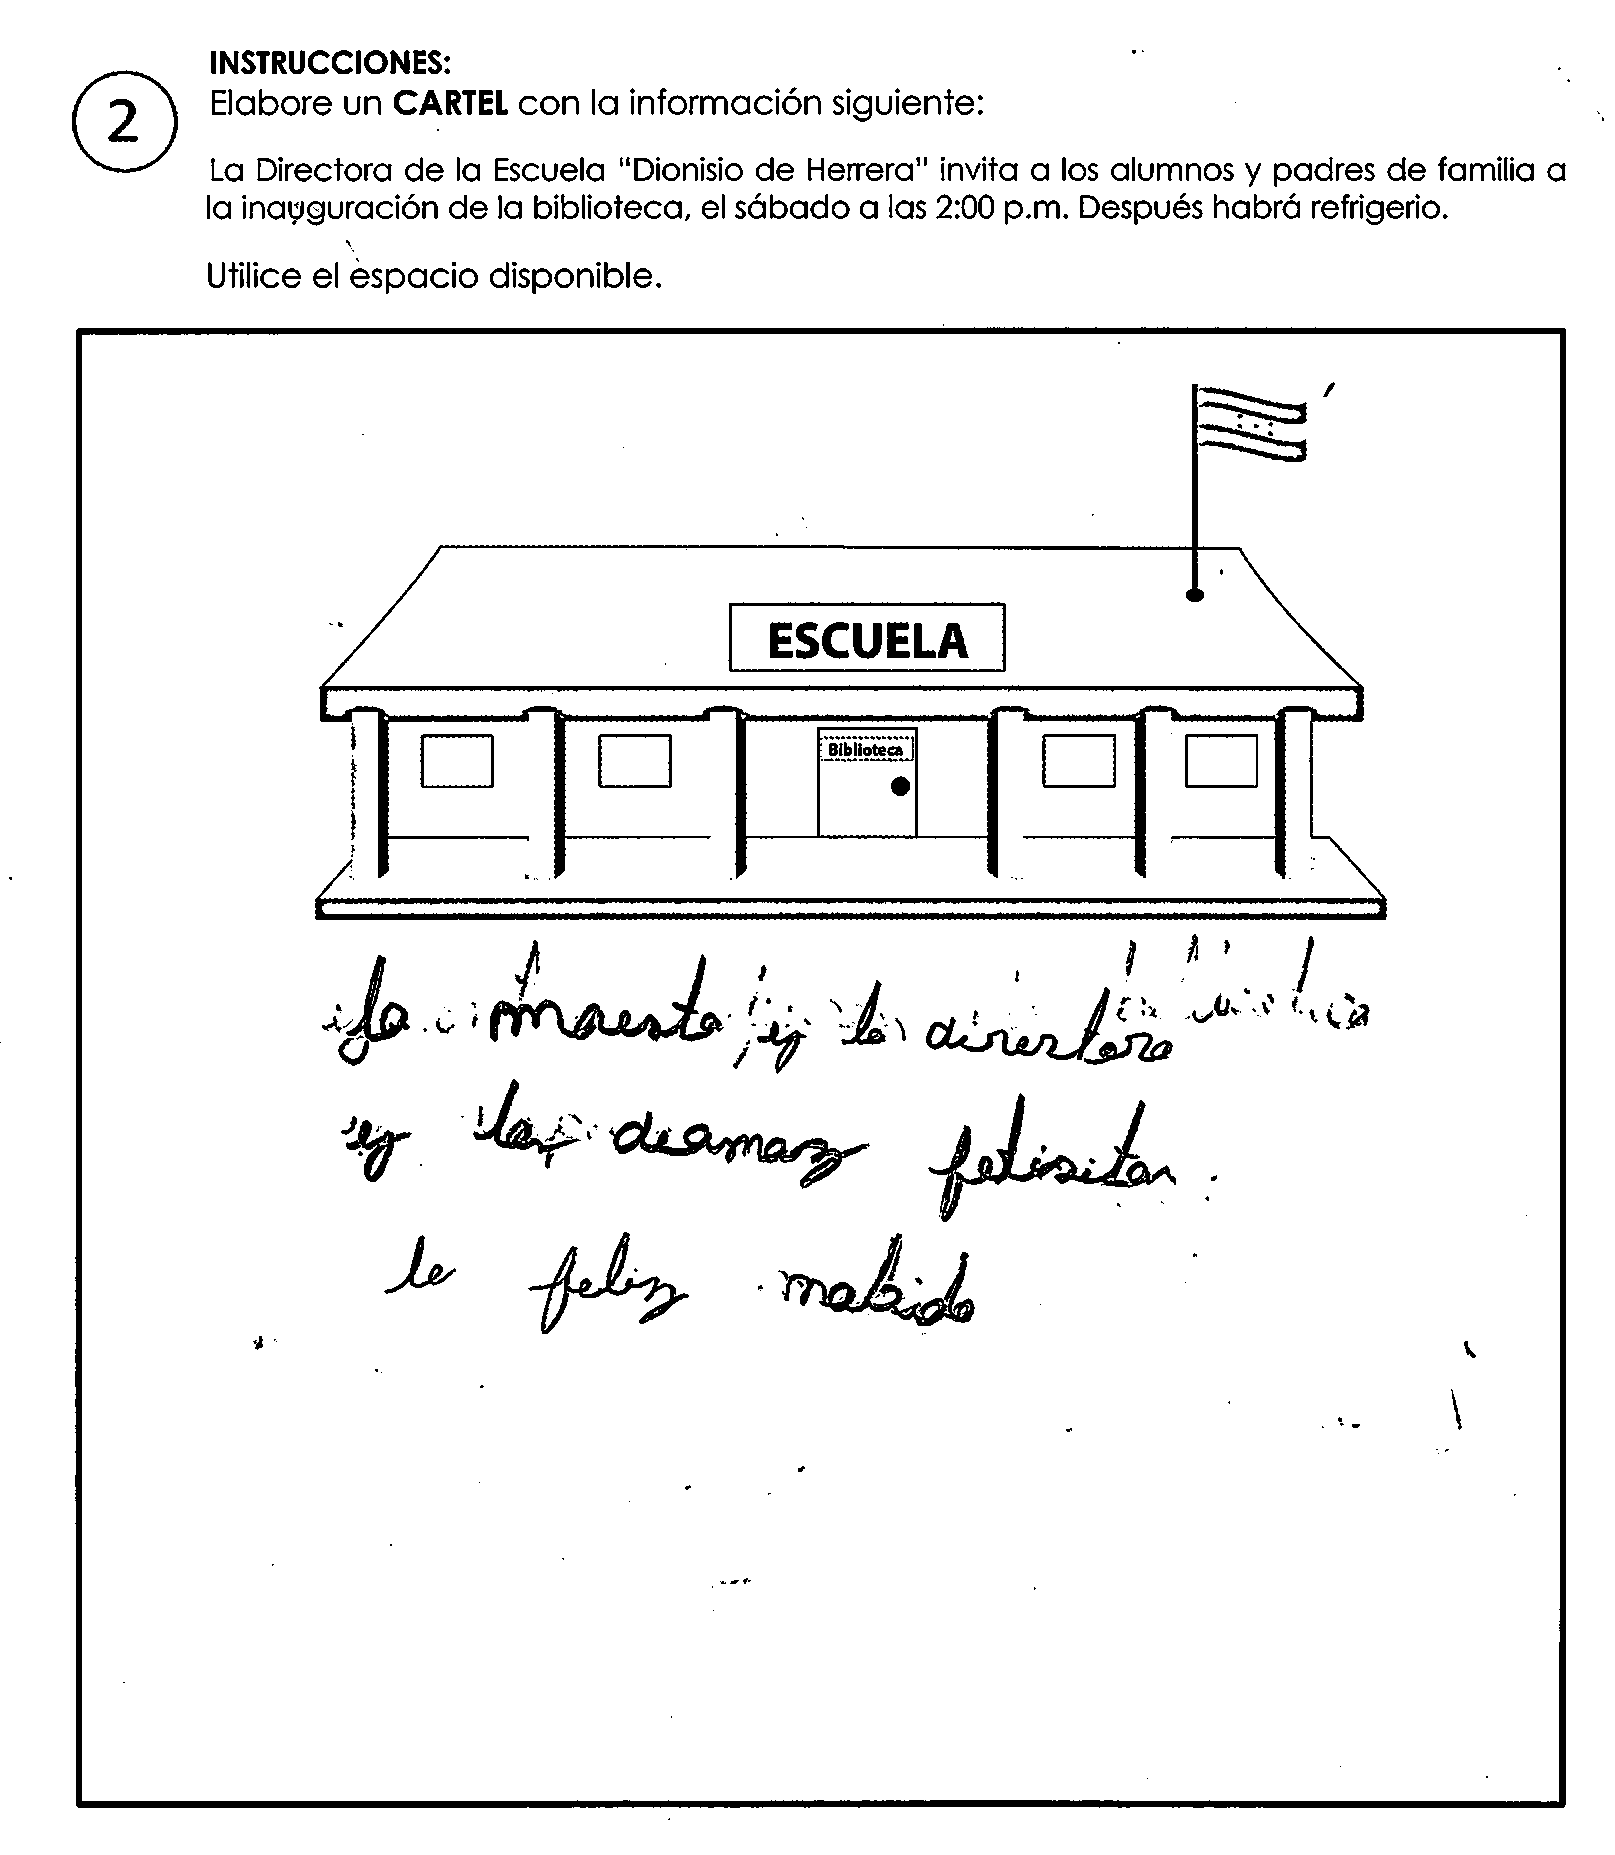 INSTRUCCIONES:
2
Elabore un CARTEL con la información siguiente:
La Directora de la Escuela "Dionisio de Herrera" invita a los alumnos y padres de familia a
la inauguración de la biblioteca, el sábado a las 2:00 p.m. Después habrá refrigerio.
Utilice el espacio disponible.
ESCUELA
Biblioteca
la maesta y la direstora
y los deamaz felisitan
le feliz mabido